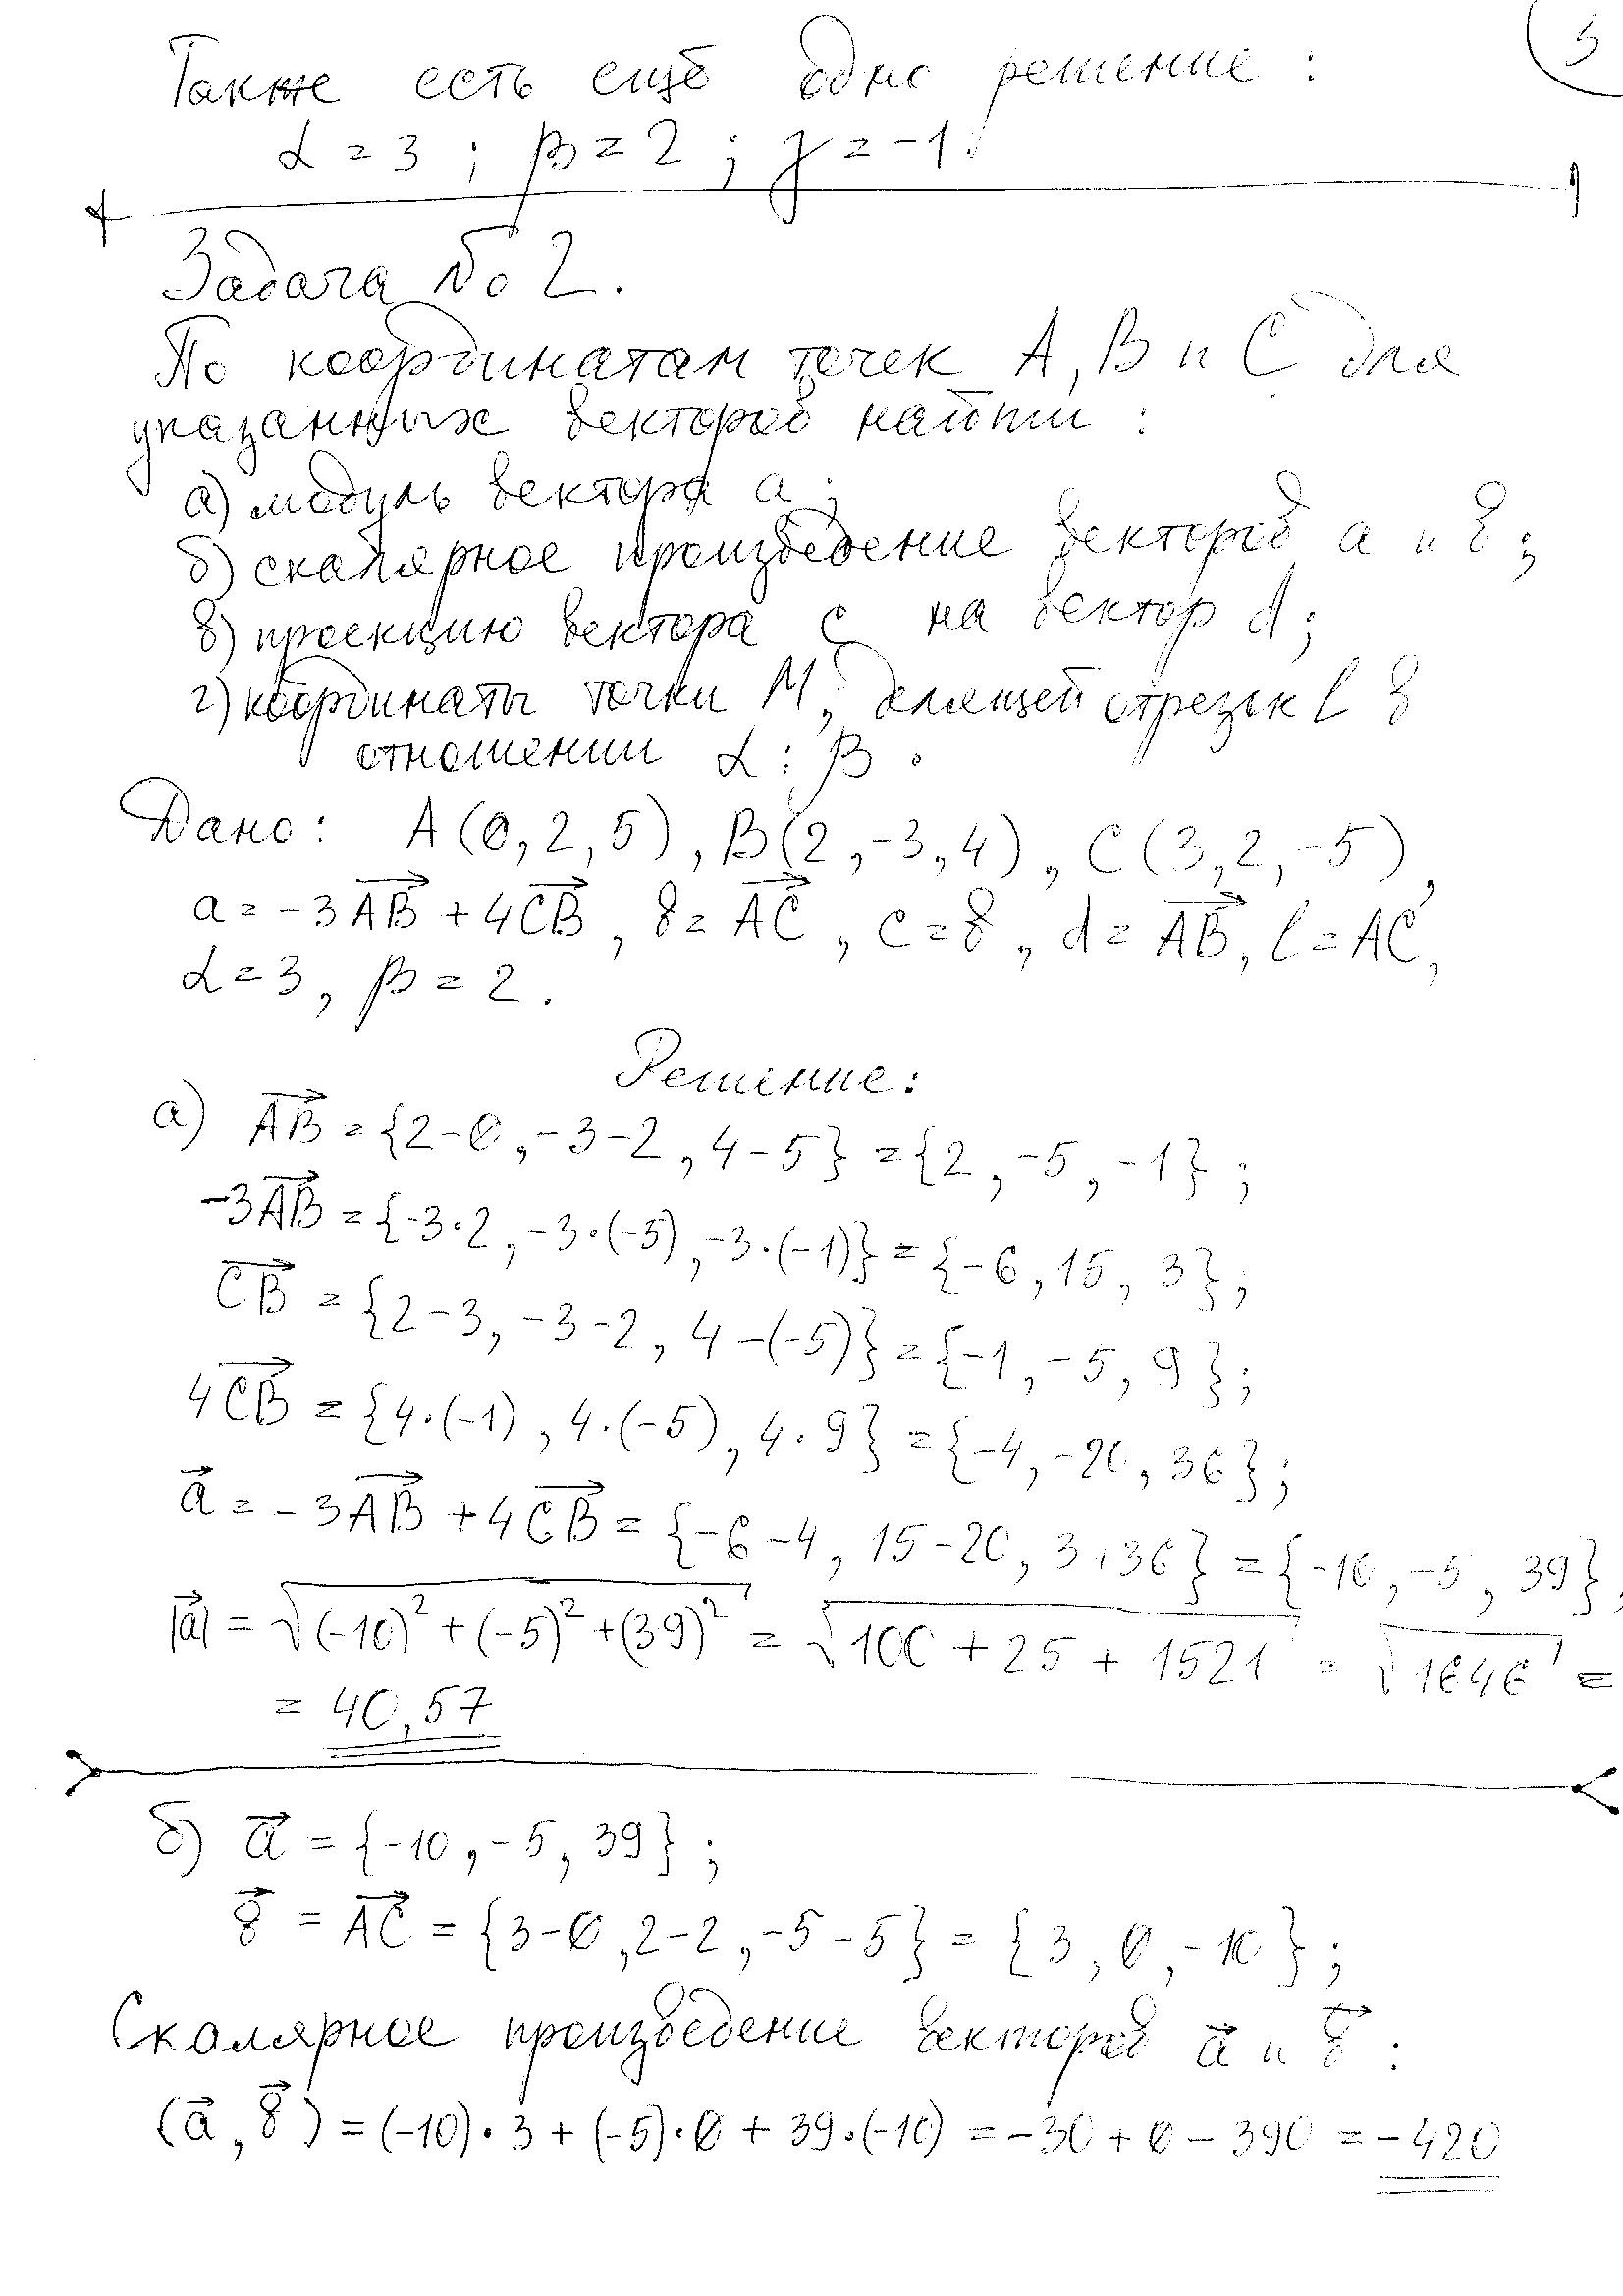 3
Также есть ещё одно решение :
α = 3 ; β = 2 ; γ = -1.
Задача № 2.
По координатам точек A, B и C для
указанных векторов найти :
а) модуль вектора a ;
б) скалярное произведение векторов a и в ;
в) проекцию вектора c на вектор d ;
г) координаты точки M, делящей отрезок l в
отношении α : β .
Дано : A(0, 2, 5), B(2, -3, 4), C(3, 2, -5),
a = -3AB + 4CB, в = AC, c = в, d = AB, l = AC,
α = 3, β = 2.
Решение :
а) AB = {2-0, -3-2, 4-5} = {2, -5, -1} ;
-3AB = {-3·2, -3·(-5), -3·(-1)} = {-6, 15, 3} ;
CB = {2-3, -3-2, 4-(-5)} = {-1, -5, 9} ;
4CB = {4·(-1), 4·(-5), 4·9} = {-4, -20, 36} ;
a = -3AB + 4CB = {-6-4, 15-20, 3+36} = {-10, -5, 39} ;
|a| = √((-10)² + (-5)² + (39)²) = √(100 + 25 + 1521) = √1646 =
= 40,57
б) a = {-10, -5, 39} ;
в = AC = {3-0, 2-2, -5-5} = {3, 0, -10} ;
Скалярное произведение векторов a и в :
(a, в) = (-10)·3 + (-5)·0 + 39·(-10) = -30 + 0 - 390 = -420